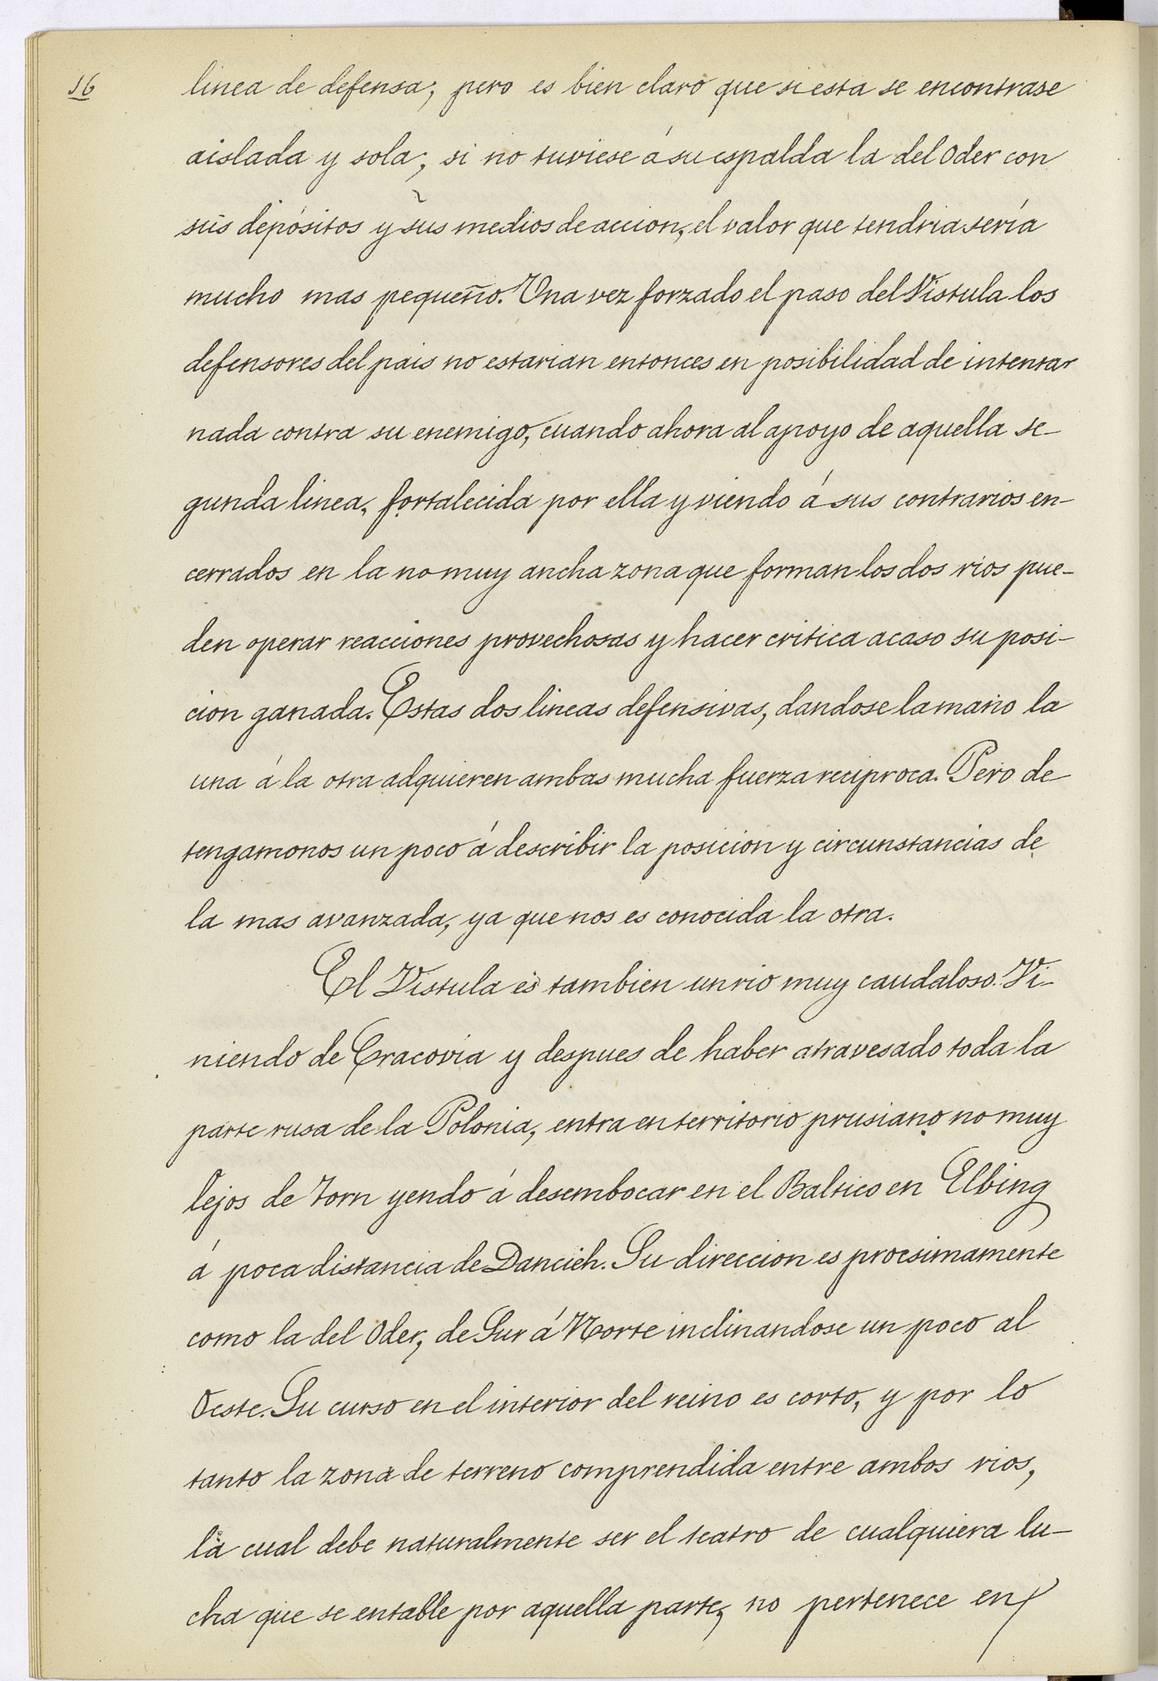 16
linea de defensa; pero es bien claro que si esta se encontrase
aislada y sola, si no tuviese á su espalda la del Oder con
sus depósitos y sus medios de accion, el valor que tendria sería
mucho mas pequeño. Una vez forzado el paso del Vistula los
defensores del pais no estarian entonces en posibilidad de intentar
nada contra su enemigo, cuando ahora al apoyo de aquella se-
gunda linea, fortalecida por ella y viendo á sus contrarios en-
cerrados en la no muy ancha zona que forman los dos rios pue-
den operar reacciones provechosas y hacer critica acaso su posi-
cion ganada. Estas dos lineas defensivas, dandose la mano la
una á la otra adquieren ambas mucha fuerza reciproca. Pero de
tengamonos un poco á describir la posicion y circunstancias de
la mas avanzada, ya que nos es conocida la otra.
El Vistula es tambien un rio muy caudaloso. Vi-
niendo de Cracovia y despues de haber atravesado toda la
parte rusa de la Polonia, entra en territorio prusiano no muy
lejos de Torn yendo á desembocar en el Baltico en Elbing
á poca distancia de Dancich. Su direccion es procsimamente
como la del Oder, de Sur á Norte inclinandose un poco al
Oeste. Su curso en el interior del reino es corto, y por lo
tanto la zona de terreno comprendida entre ambos rios,
la cual debe naturalmente ser el teatro de cualquiera lu-
cha que se entable por aquella parte, no pertenece en